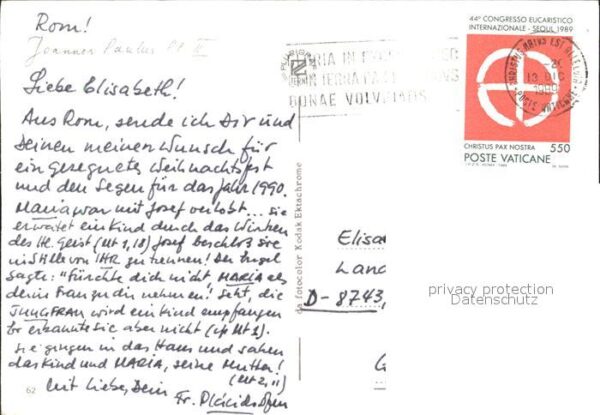 Rom!
Joannes Paulus PP. II
Liebe Elisabeth!
Aus Rom, sende ich Dir und
Deinen meinen Wunsch für
ein gesegnetes Weihnachtsfest
und den Segen für das Jahr 1990.
Maria war mit Josef verlobt... sie
erwartet ein Kind durch das Wirken
des Hl. Geist (Mt 1,18) Josef beschloß sie
in Stille von IHR zu trennen! Der Engel
sagte: "Fürchte dich nicht, MARIA als
deine Frau zu dir nehmen! Seht, die
JUNGFRAU wird ein Kind empfangen
Er erkannte sie aber nicht (Mt 1).
Sie gingen in das Haus und sahen
das Kind und MARIA, seine Mutter!
(Mt 2,11)
Mit Liebe, Dein
Fr.
62
da fotocolor Kodak Ektachrome
IN
BONAE
44º CONGRESSO EUCARISTICO
INTERNAZIONALE - SEOUL 1989
CHRISTUS PAX NOSTRA
550
POSTE VATICANE
13 DIC
POSTE VATICANE
Elisa
Land
D-8743,
G
privacy protection
Datenschutz